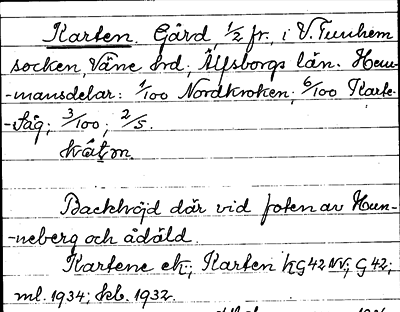 Karten. Gård, 1/2 fr., i V. Tunhem
socken, Väne hrd, Älfsborgs län. Hem-
-mansdelar: 1/100 Nordkroken; 6/100 Karte-
-Såg; 3/100; 2/5.
Backhöjd där vid foten av Hun-
-neberg och ådäld.
Kartene ek.; Karten kG42NV; G42;
ml. 1934; hb. 1932.